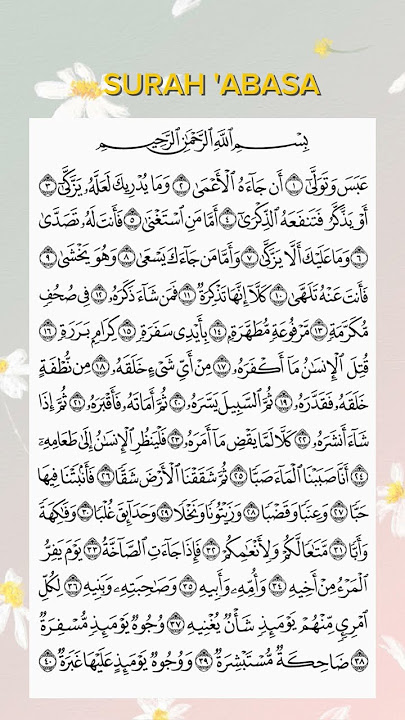 SURAH 'ABASA
بِسْمِ اللَّهِ الرَّحْمَٰنِ الرَّحِيمِ
عَبَسَ وَتَوَلَّىٰٓ ١ أَن جَآءَهُ ٱلْأَعْمَىٰ ٢ وَمَا يُدْرِيكَ لَعَلَّهُۥ يَزَّكَّىٰٓ ٣
أَوْ يَذَّكَّرُ فَتَنفَعَهُ ٱلذِّكْرَىٰٓ ٤ أَمَّا مَنِ ٱسْتَغْنَىٰ ٥ فَأَنتَ لَهُۥ تَصَدَّىٰ
٦ وَمَا عَلَيْكَ أَلَّا يَزَّكَّىٰ ٧ وَأَمَّا مَن جَآءَكَ يَسْعَىٰ ٨ وَهُوَ يَخْشَىٰ ٩
فَأَنتَ عَنْهُ تَلَهَّىٰ ١٠ كَلَّآ إِنَّهَا تَذْكِرَةٌ ١١ فَمَن شَآءَ ذَكَرَهُۥ ١٢ فِى صُحُفٍ
مُّكَرَّمَةٍ ١٣ مَّرْفُوعَةٍ مُّطَهَّرَةٍۭ ١٤ بِأَيْدِى سَفَرَةٍ ١٥ كِرَامٍۭ بَرَرَةٍ ١٦
قُتِلَ ٱلْإِنسَٰنُ مَآ أَكْفَرَهُۥ ١٧ مِنْ أَىِّ شَىْءٍ خَلَقَهُۥ ١٨ مِن نُّطْفَةٍ
خَلَقَهُۥ فَقَدَّرَهُۥ ١٩ ثُمَّ ٱلسَّبِيلَ يَسَّرَهُۥ ٢٠ ثُمَّ أَمَاتَهُۥ فَأَقْبَرَهُۥ ٢١ ثُمَّ إِذَا
شَآءَ أَنشَرَهُۥ ٢٢ كَلَّا لَمَّا يَقْضِ مَآ أَمَرَهُۥ ٢٣ فَلْيَنظُرِ ٱلْإِنسَٰنُ إِلَىٰ طَعَامِهِۦٓ
٢٤ أَنَّا صَبَبْنَا ٱلْمَآءَ صَبًّا ٢٥ ثُمَّ شَقَقْنَا ٱلْأَرْضَ شَقًّا ٢٦ فَأَنۢبَتْنَا فِيهَا
حَبًّا ٢٧ وَعِنَبًا وَقَضْبًا ٢٨ وَزَيْتُونًا وَنَخْلًا ٢٩ وَحَدَآئِقَ غُلْبًا ٣٠ وَفَٰكِهَةً
وَأَبًّا ٣١ مَّتَٰعًا لَّكُمْ وَلِأَنْعَٰمِكُمْ ٣٢ فَإِذَا جَآءَتِ ٱلصَّآخَّةُ ٣٣ يَوْمَ يَفِرُّ
ٱلْمَرْءُ مِنْ أَخِيهِ ٣٤ وَأُمِّهِۦ وَأَبِيهِ ٣٥ وَصَٰحِبَتِهِۦ وَبَنِيهِ ٣٦ لِكُلِّ
ٱمْرِئٍ مِّنْهُمْ يَوْمَئِذٍ شَأْنٌ يُغْنِيهِ ٣٧ وُجُوهٌ يَوْمَئِذٍ مُّسْفِرَةٌ
٣٨ ضَاحِكَةٌ مُّسْتَبْشِرَةٌ ٣٩ وَوُجُوهٌ يَوْمَئِذٍ عَلَيْهَا غَبَرَةٌ ٤٠